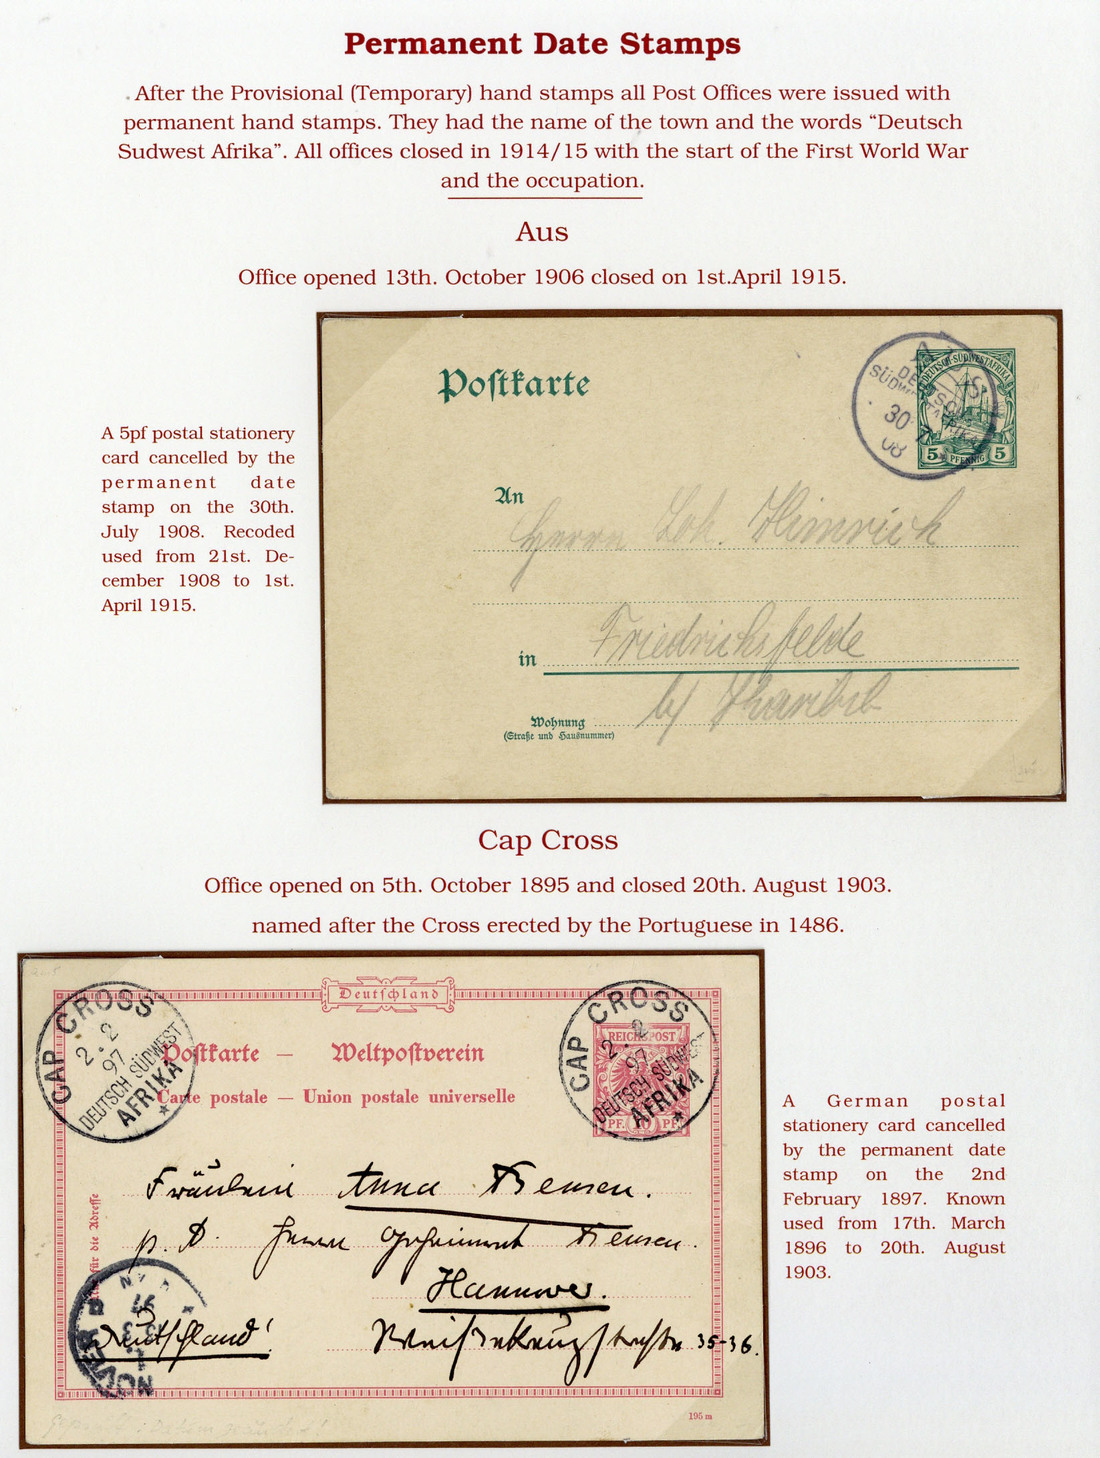 Permanent Date Stamps
After the Provisional (Temporary) hand stamps all Post Offices were issued with
permanent hand stamps. They had the name of the town and the words “Deutsch
Sudwest Afrika”. All offices closed in 1914/15 with the start of the First World War
and the occupation.
Aus
Office opened 13th. October 1906 closed on 1st.April 1915.
A 5pf postal stationery
card cancelled by the
permanent date
stamp on the 30th.
July 1908. Recoded
used from 21st. De-
cember 1908 to 1st.
April 1915.
Postkarte
AUS
DEUTSCH
SÜDWESTAFRIKA
30 7
08
DEUTSCH-SÜDWESTAFRIKA
5 PFENNIG 5
An
Herrn Joh. Hinrich
in Friedrichsfelde
Wohnung
(Straße und Hausnummer)
b/ Karibib
Cap Cross
Office opened on 5th. October 1895 and closed 20th. August 1903.
named after the Cross erected by the Portuguese in 1486.
Deutschland
CAP CROSS
2 2
97
DEUTSCH SÜDWEST
AFRIKA
CAP CROSS
2 2
97
DEUTSCH SÜDWEST
AFRIKA
REICHSPOST
PF. 10 PF.
Postkarte — Weltpostverein
Carte postale — Union postale universelle
für die Adresse
Fräulein Anna
Hannover.
Deutschland!
35-36.
195 m
A German postal
stationery card cancelled
by the permanent date
stamp on the 2nd
February 1897. Known
used from 17th. March
1896 to 20th. August
1903.